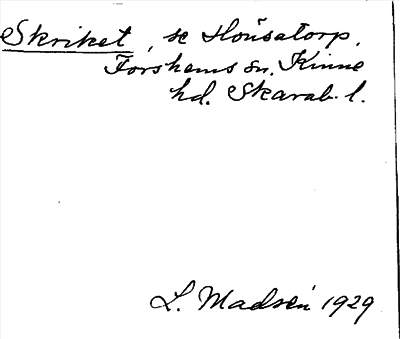 Skriket, se Hönsatorp,
Forshems sn. Kinne
hd. Skarab. l.
L. Madsén 1929